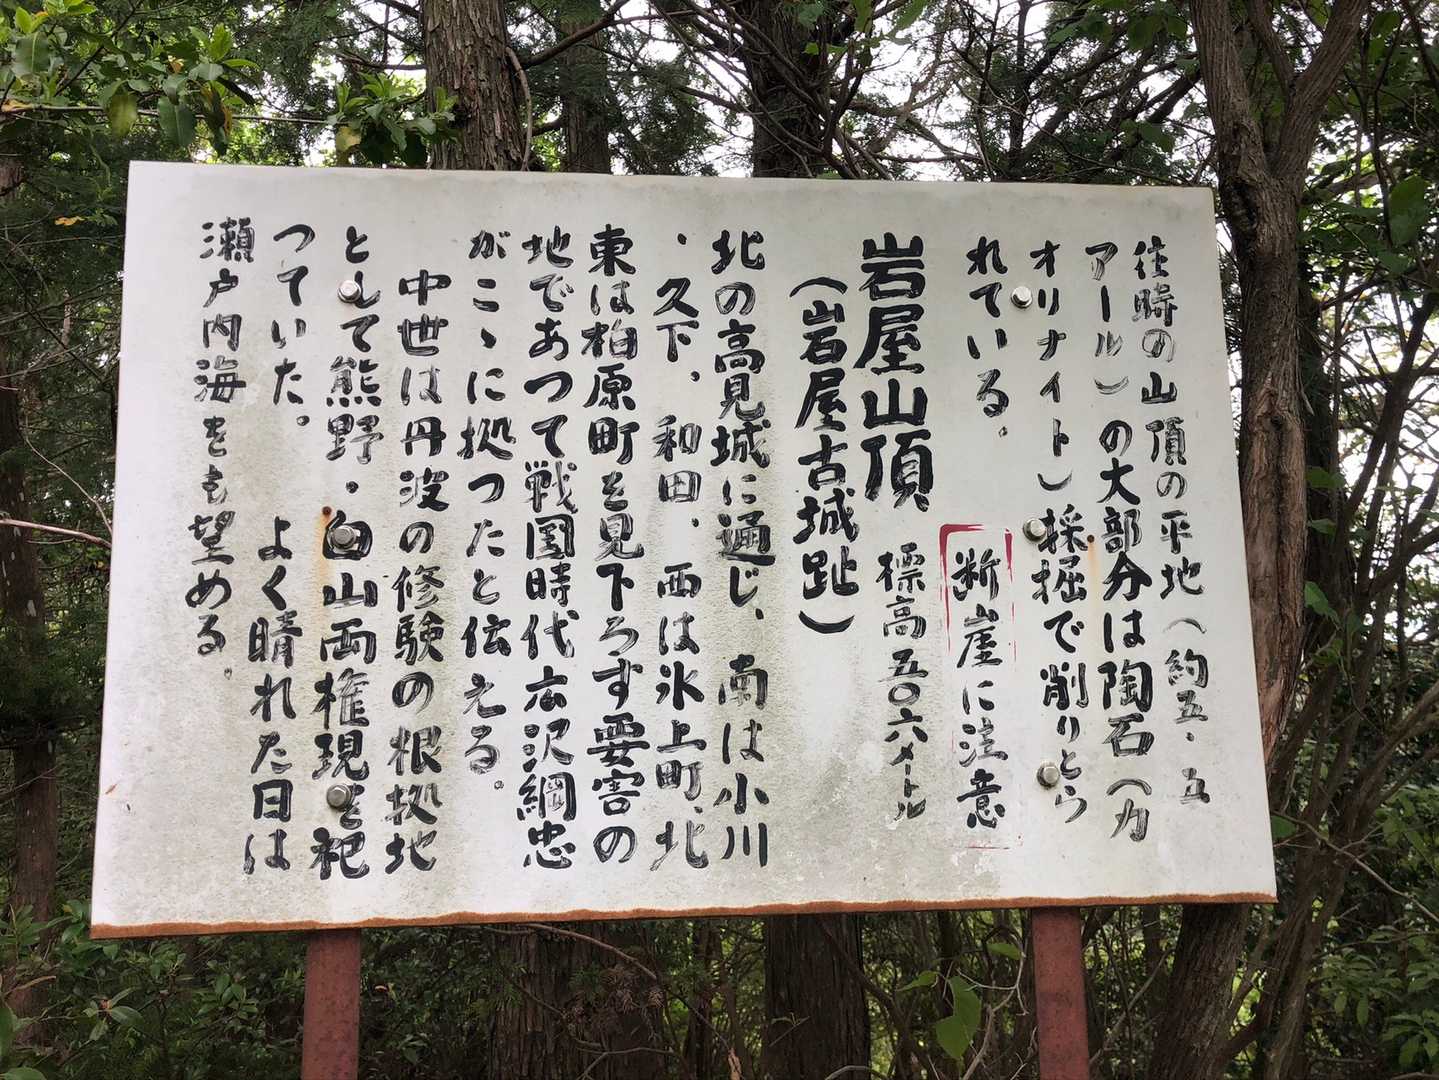 往時の山頂の平地（約五・五
アール）の大部分は陶石（カ
オリナイト）採掘で削りとら
れている。
断崖に注意
岩屋山頂 標高五〇六メートル
（岩屋古城趾）
北の高見城に通じ、南は小川
・久下、和田、西は氷上町、北
東は柏原町を見下ろす要害の
地であつて戦国時代広沢綱忠
がこゝに拠つたと伝える。
中世は丹波の修験の根拠地
として熊野・白山両権現を祀
つていた。 よく晴れた日は
瀬戸内海をも望める。